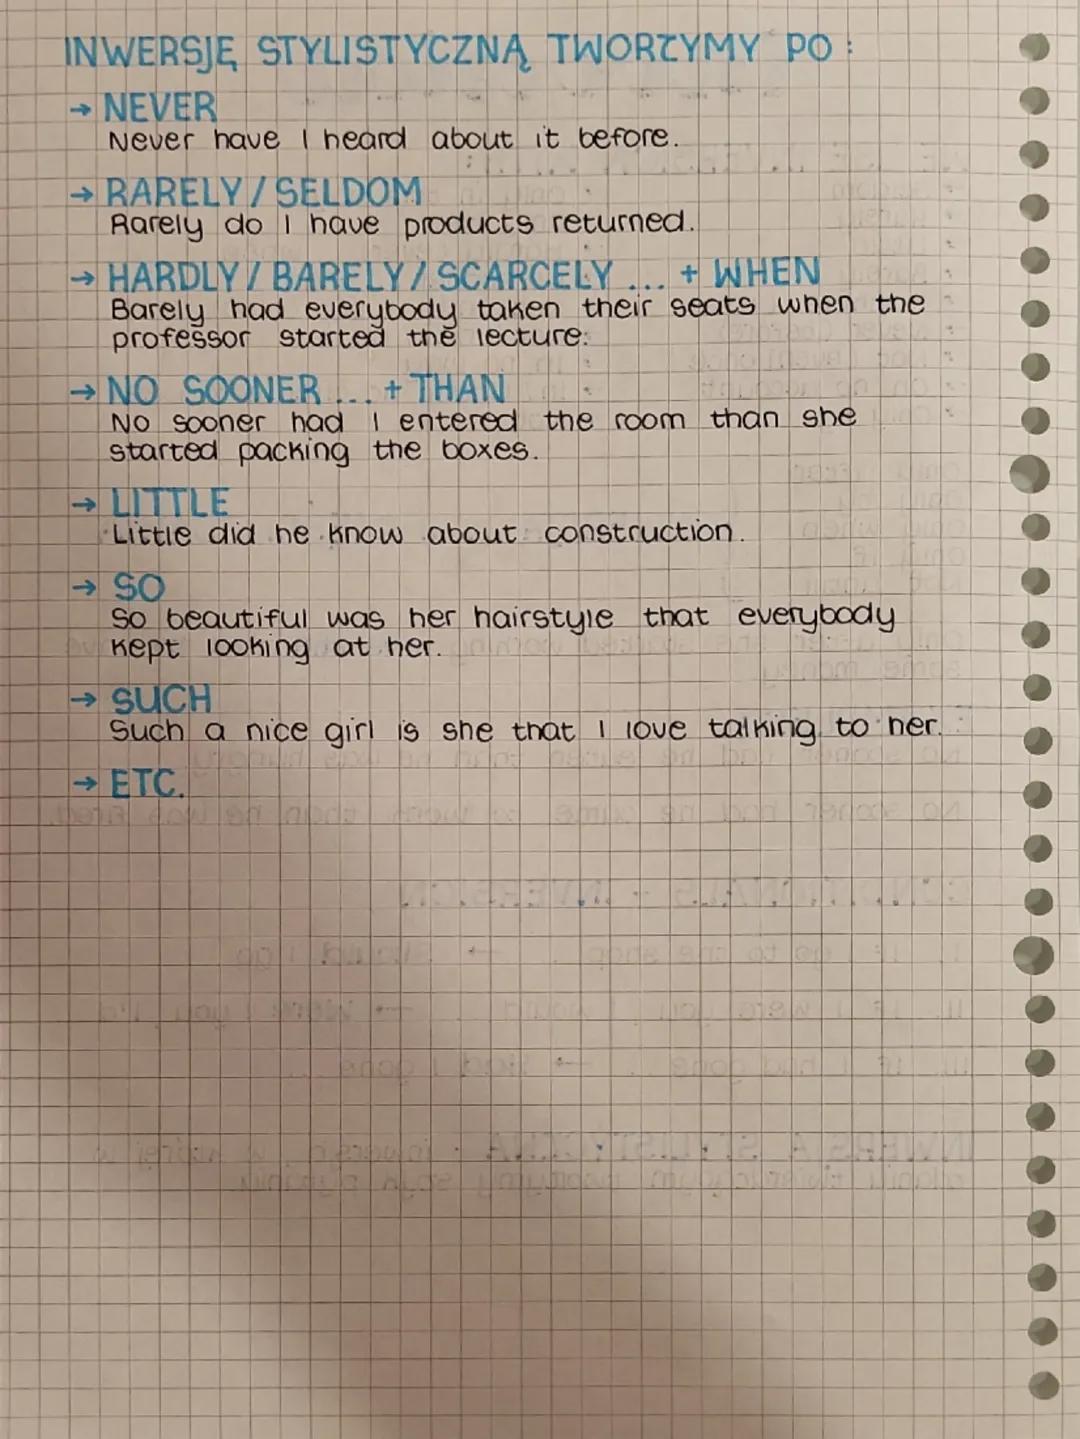 INWERSJĘ STYLISTYCZNĄ TWORZYMY PO:
→ NEVER
Never have I heard about it before.
→ RARELY/SELDOM
Rarely do I have products returned.
→ HARDLY/BARELY/SCARCELY ... + WHEN
Barely had everybody taken their seats when the
professor started the lecture.
→ NO SOONER ... + THAN
No sooner had I entered the room than she
started packing the boxes.
→ LITTLE
Little did he know about construction.
→ SO
So beautiful was her hairstyle that everybody
kept looking at her.
→ SUCH
Such a nice girl is she that I love talking to her.
→ ETC.